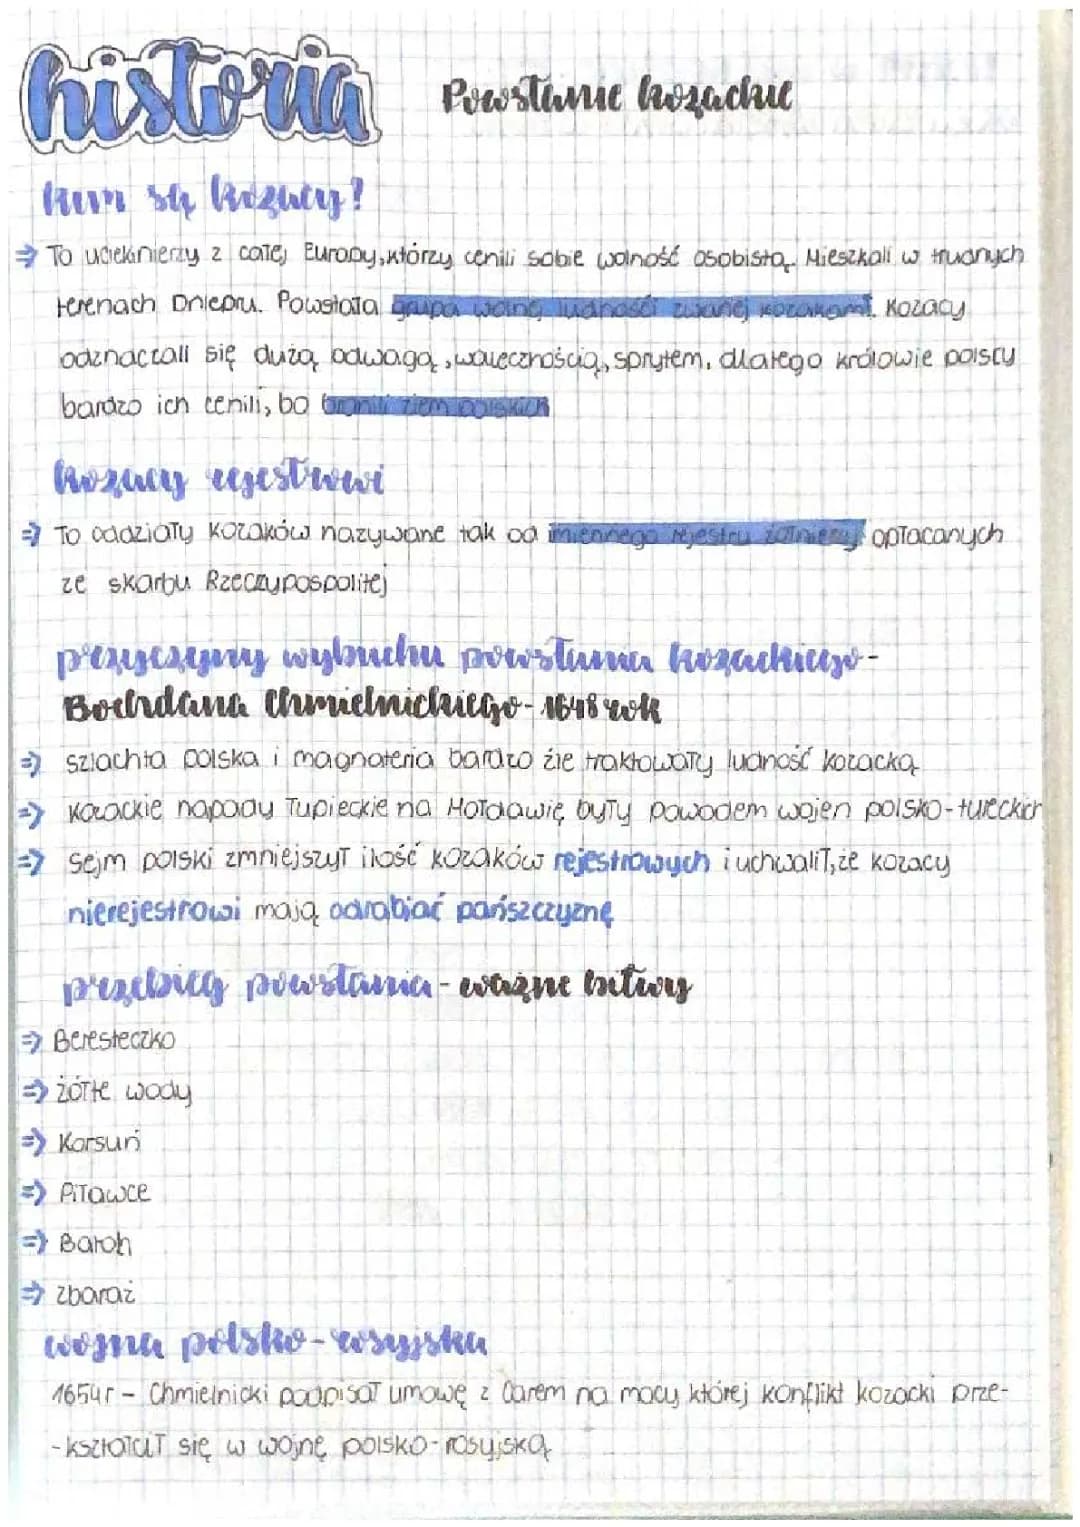 historia
Powstanie kozackie
kim są kozacy?
⇒ To uciekinierzy z całej Europy, którzy cenili sobie wolność osobistą. Mieszkali w trudnych
terenach Dniepru. Powstała grupa wolnej ludności zwanej kozakami. Kozacy
odznaczali się dużą odwagą, walecznością, sprytem, dlatego królowie polscy
bardzo ich cenili, bo bronili ziem polskich
kozacy rejestrowi
⇒ To oddziały kozaków nazywane tak od imiennego rejestru żołnierzy opłacanych
ze skarbu Rzeczypospolitej
przyczyny wybuchu powstania kozackiego-
Bochdana Chmielnickiego- 1648 rok
⇒ szlachta polska i magnateria bardzo źle traktowały ludność kozacką
⇒ Kozackie napady łupieckie na Mołdawię były powodem wojen polsko-tureckich
⇒ Sejm polski zmniejszył ilość kozaków rejestrowych i uchwalił, że kozacy
nierejestrowi mają odrabiać pańszczyznę
przebieg powstania - ważne bitwy
⇒ Beresteczko
⇒ żółte wody
⇒ Korsuń
⇒ Piławce
⇒ Batoh
⇒ zbaraż
wojna polsko-rosyjska
1654r - Chmielnicki podpisał umowę z Carem na mocy której konflikt kozacki prze-
-kształcił się w wojnę polsko-rosyjską